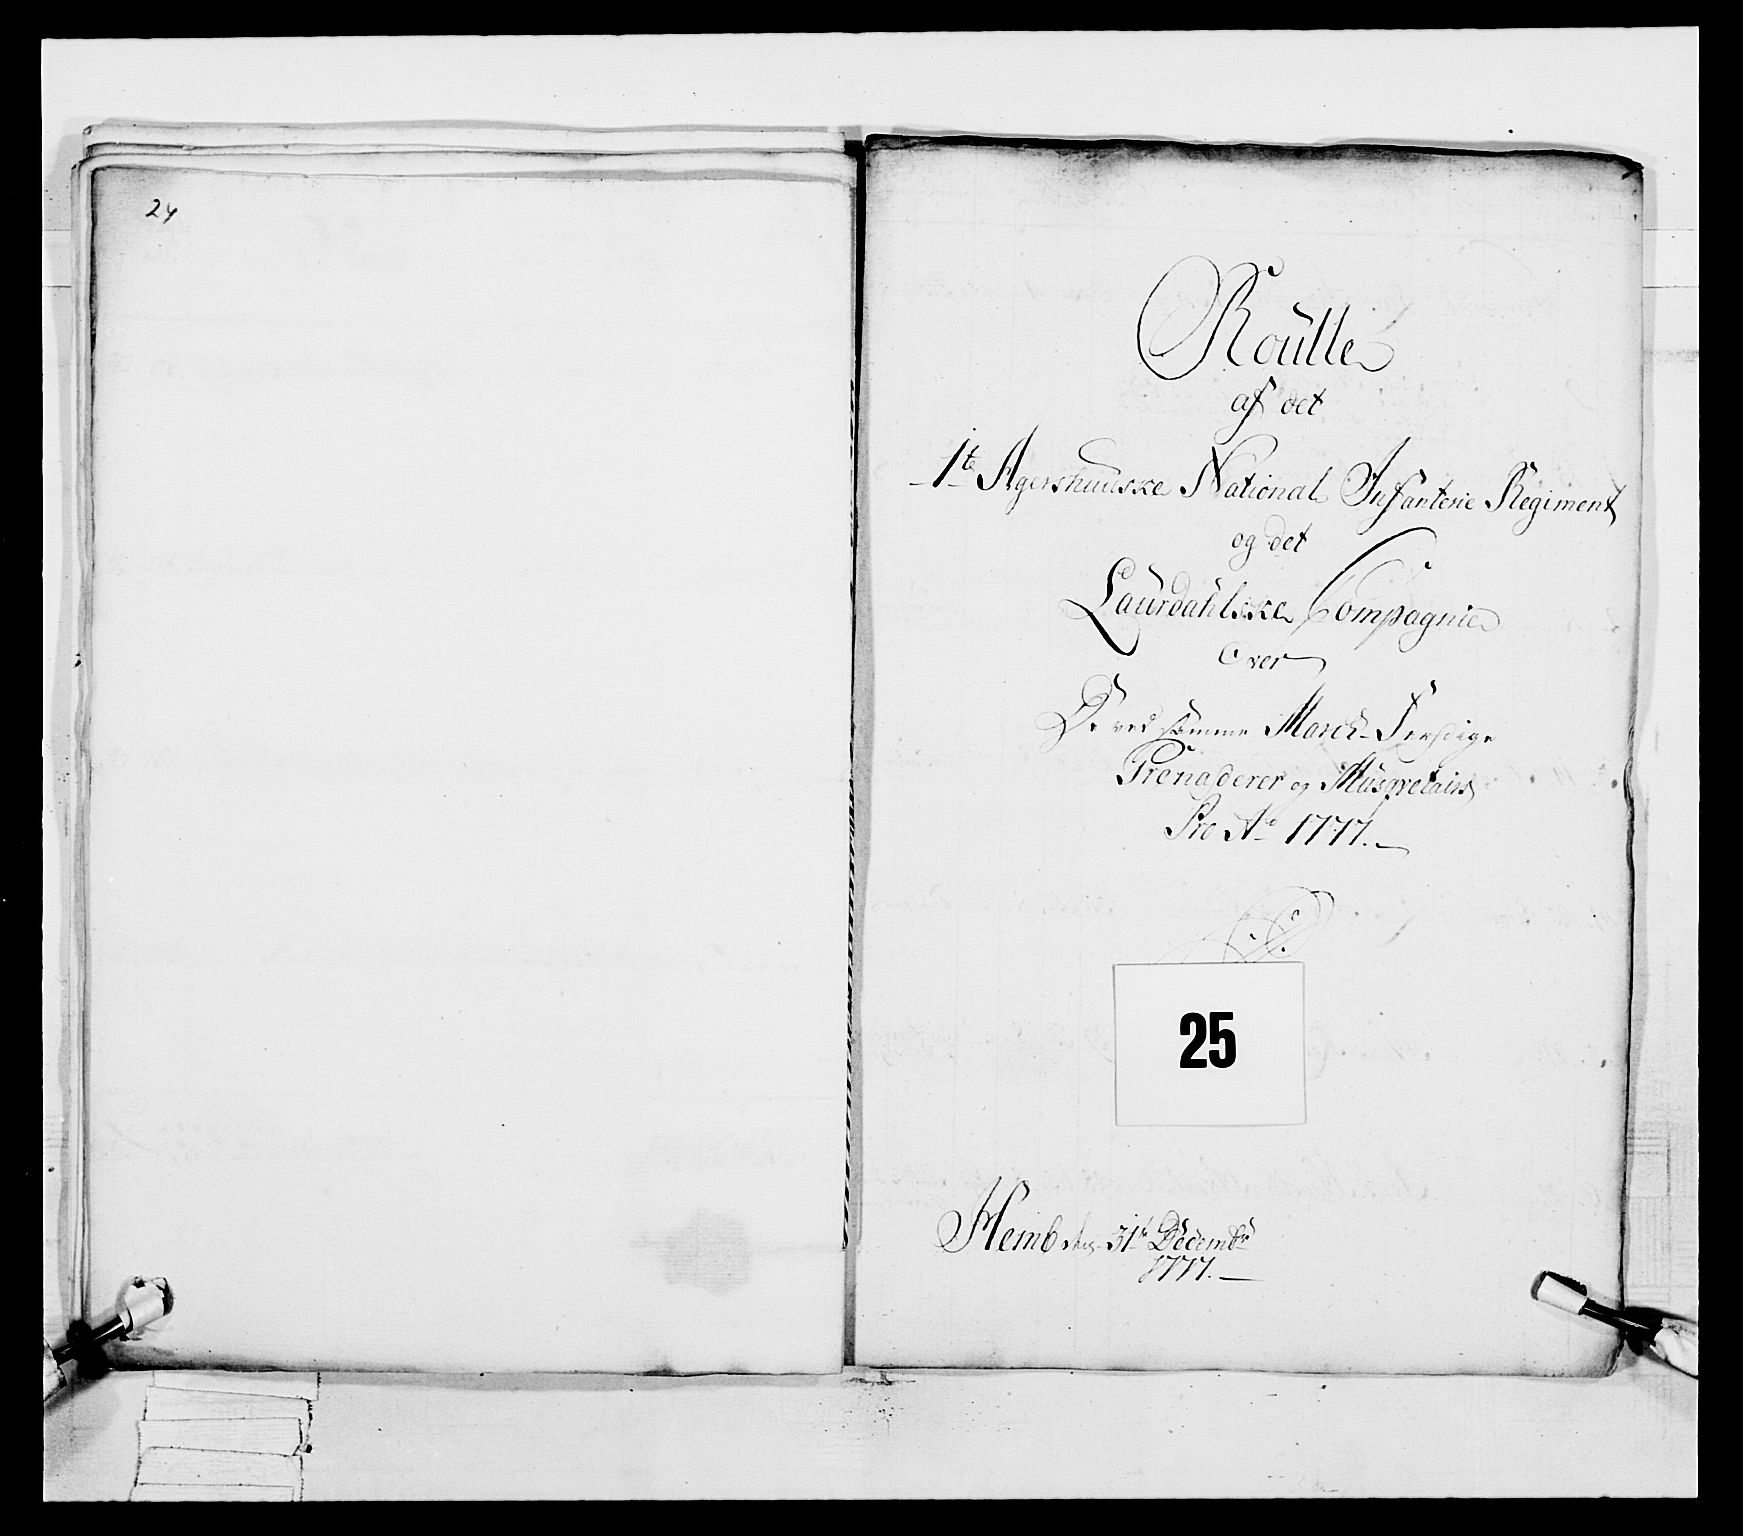 24
Roulle
af det
1te Agershuuske National Infanterie Regiment
og det
Laurdahlske Compagnie
Over
De ved samme March-Ferdige
Grenaderer og Musqvetairs
Pro Ao 1777.
25
Hemb den 31te Decembr
1777.